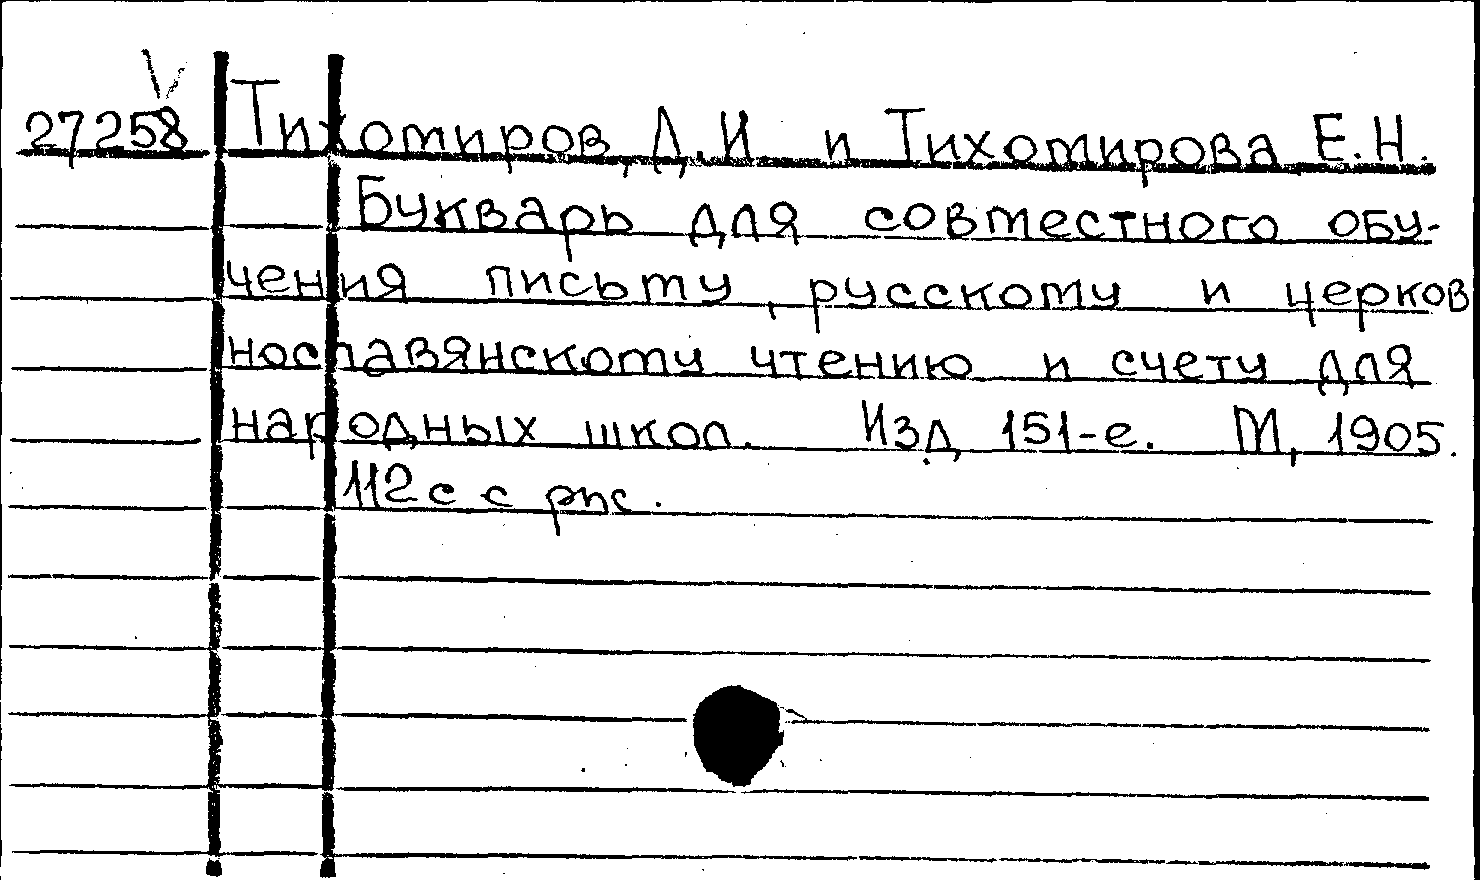 27258 Тихомиров, Д.И и Тихомирова Е.Н.
Букварь для совместного обу-
чения письму, русскому и церков
нославянскому чтению и счету для
народных школ. Изд. 151-е. М, 1905.
112 с с рис.